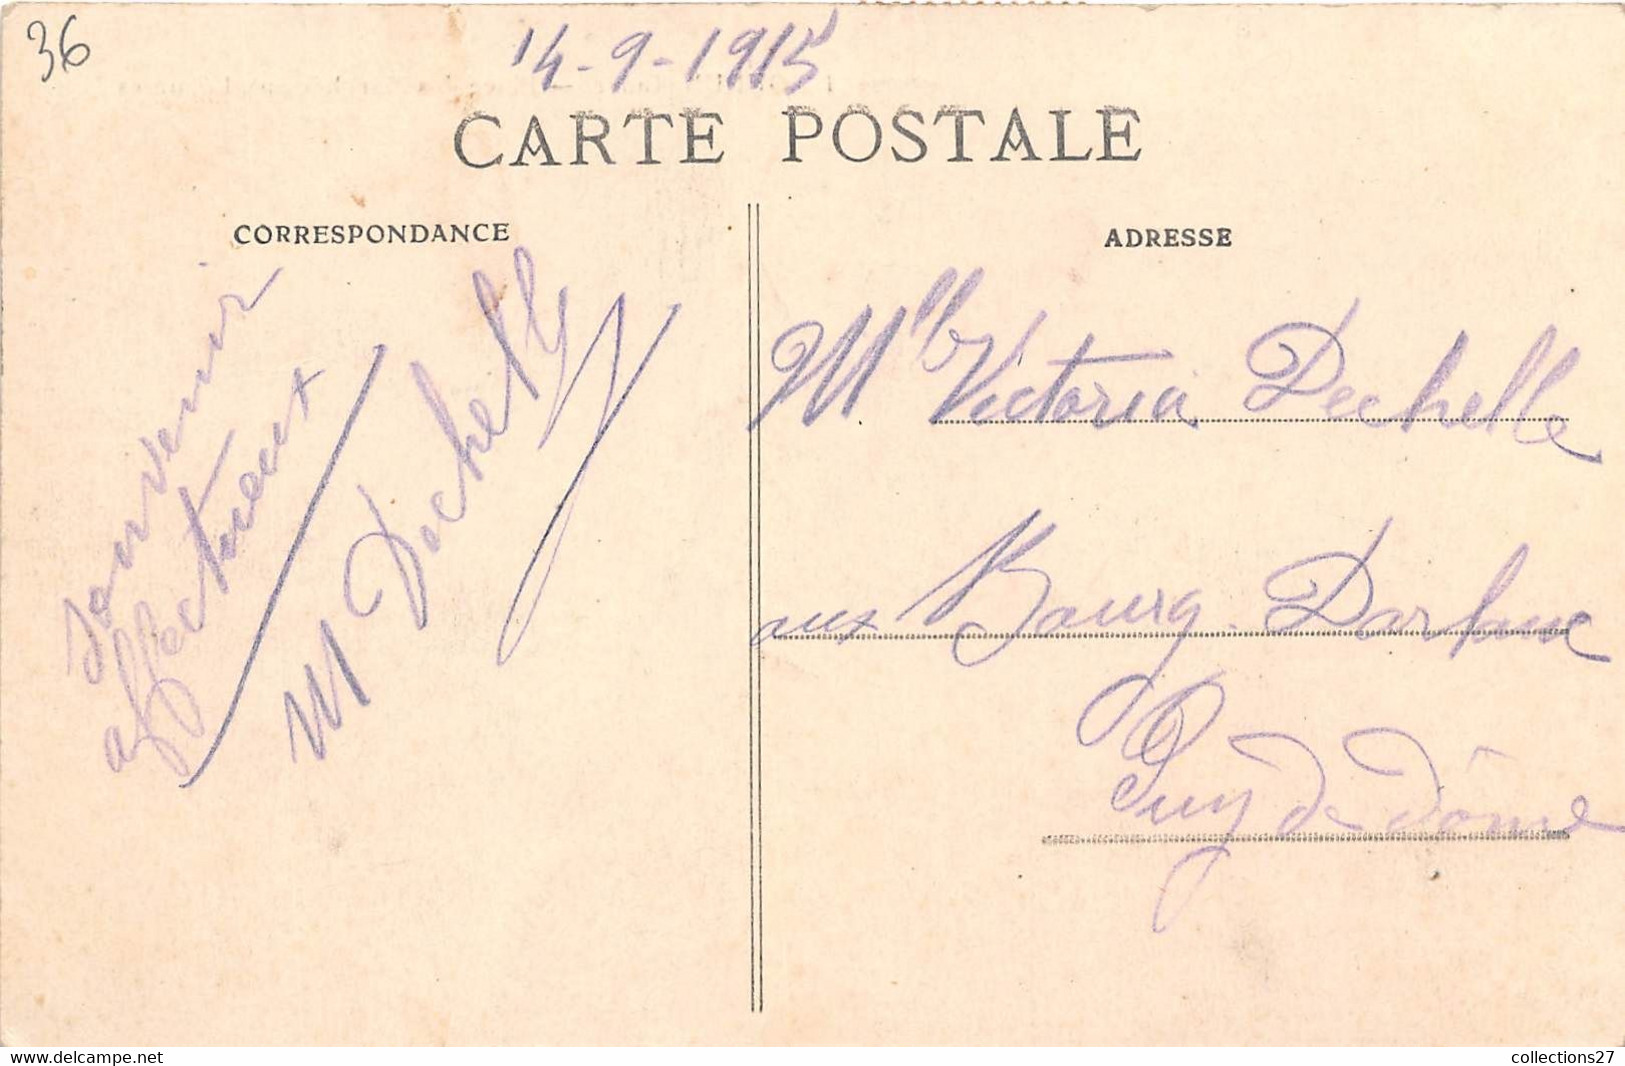 36
14-9-1915
CARTE POSTALE
CORRESPONDANCE
ADRESSE
souvenir
affectueux
M Dechelle
Mlle Victoria Dechelle
aux Bourg. Darlanc
Puy De Dôme
www.delcampe.net
collections27